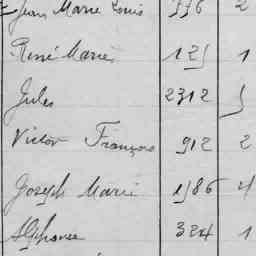 Jean Marie Louis 336 2
René Marie 125 1
Jules 2312 5
Victor François 912 2
Joseph Marie 1586 4
Alphonse 324 1